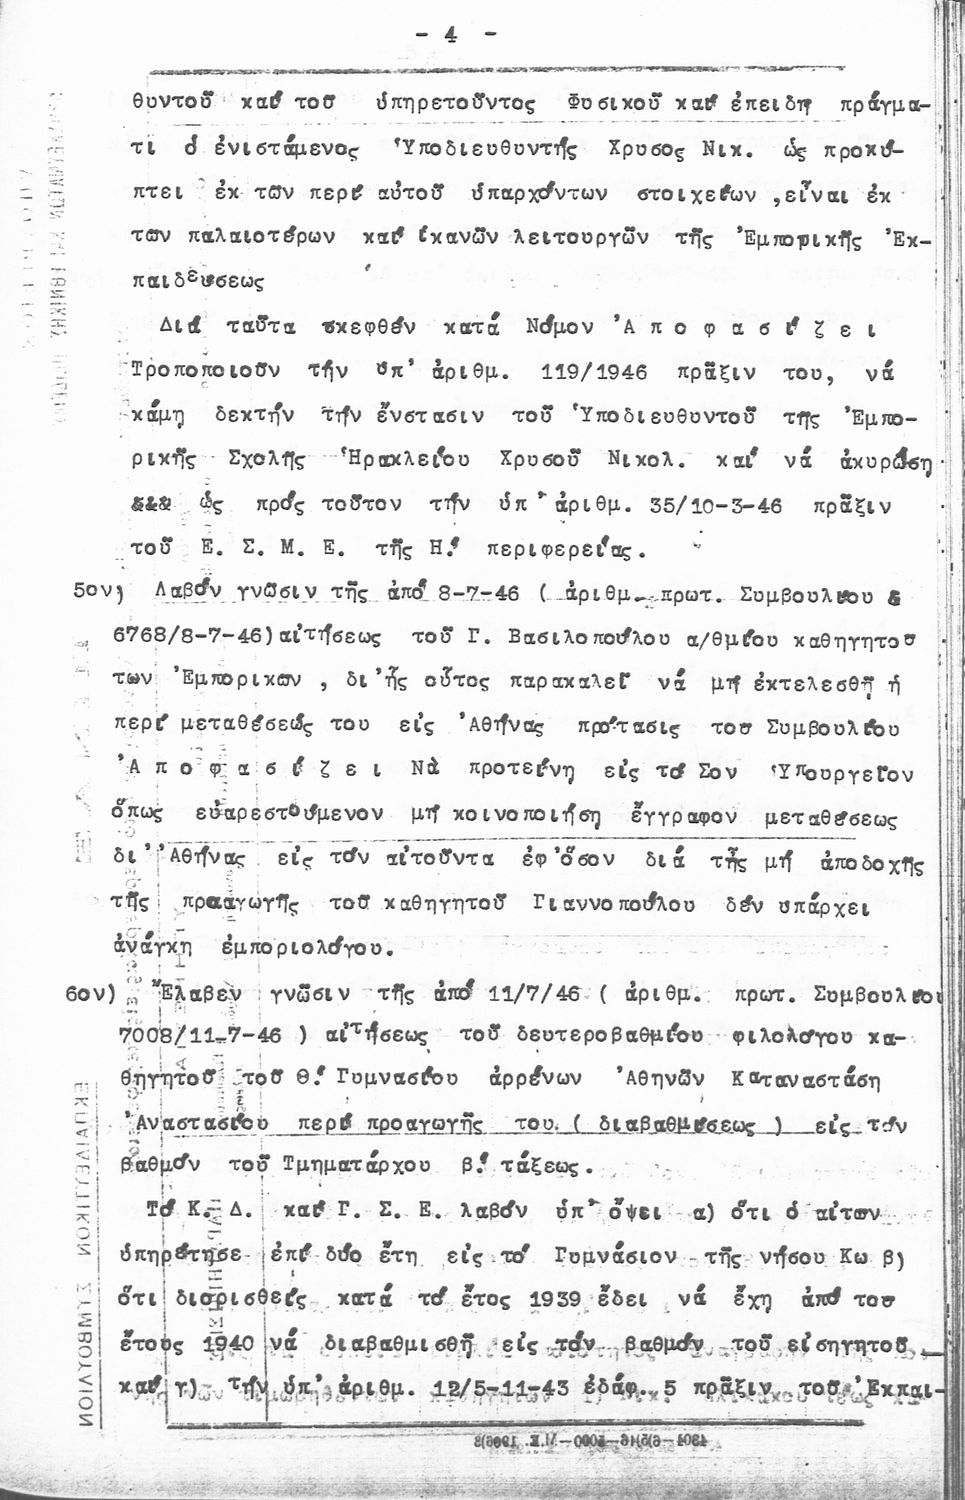 - 4 -
θυντοῦ καί τοῦ ὑπηρετοῦντος Φυσικοῦ καί ἐπειδή πράγμα-
τι ὁ ἐνιστάμενος Ὑποδιευθυντής Χρυσος Νικ. ὡς προκύ-
πτει ἐκ τῶν περί αὐτοῦ ὑπαρχόντων στοιχείων ,εἶναι ἐκ
τῶν παλαιοτέρων καί ἱκανῶν λειτουργῶν τῆς Ἐμπορικῆς Ἐκ-
παιδεύσεως
Διά ταῦτα σκεφθέν κατά Νόμον Ἀ π ο φ α σ ί ζ ε ι
Τροποποιοῦν τήν ὑπ' ἀριθμ. 119/1946 πρᾶξιν του, νά
κάμη δεκτήν τήν ἔνστασιν τοῦ Ὑποδιευθυντοῦ τῆς Ἐμπο-
ρικῆς Σχολῆς Ἡρακλείου Χρυσοῦ Νικολ. καί νά ἀκυρώση
&&& ὡς πρός τοῦτον τήν ὑπ' ἀριθμ. 35/10-3-46 πρᾶξιν
τοῦ Ε. Σ. Μ. Ε. τῆς Η.' περιφερείας.
5ον) Λαβόν γνῶσιν τῆς ἀπό 8-7-46 ( ἀριθμ. πρωτ. Συμβουλίου
6768/8-7-46)αἰτήσεως τοῦ Γ. Βασιλοπούλου α/θμίου καθηγητοῦ
των Ἐμπορικῶν , δι'ἧς οὗτος παρακαλεῖ νά μή ἐκτελεσθῆ ἡ
περί μεταθέσεώς του εἰς Ἀθήνας πρότασις τοῦ Συμβουλίου
Ἀ π ο φ α σ ί ζ ε ι Νὰ προτείνη εἰς τό Σον Ὑπουργεῖον
ὅπως εὐαρεστούμενον μή κοινοποιήση ἔγγραφον μεταθέσεως
δι' Ἀθήνας εἰς τόν αἰτοῦντα ἐφ'ὅσον διά τῆς μή ἀποδοχῆς
τῆς προαγωγῆς τοῦ καθηγητοῦ Γιαννοπούλου δέν ὑπάρχει
ἀνάγκη ἐμποριολόγου.
6ον) Ἔλαβεν γνῶσιν τῆς ἀπό 11/7/46 ( ἀριθμ. πρωτ. Συμβουλίου
7008/11-7-46 ) αἰτήσεως τοῦ δευτεροβαθμίου φιλολόγου κα-
θηγητοῦ τοῦ Θ.' Γυμνασίου ἀρρένων Ἀθηνῶν Καταναστάση
Ἀναστασίου περί προαγωγῆς του ( διαβαθμίσεως ) εἰς τόν
βαθμόν τοῦ Τμηματάρχου β.' τάξεως.
Τό Κ. Δ. καί Γ. Σ. Ε. λαβόν ὑπ' ὄψει α) ὅτι ὁ αἰτῶν
ὑπηρέτησε ἐπί δύο ἔτη εἰς τό Γυμνάσιον τῆς νήσου Κω β)
ὅτι διορισθείς κατά τό ἔτος 1939 ἔδει νά ἔχη ἀπό τοῦ
ἔτους 1940 νά διαβαθμισθῆ εἰς τόν βαθμόν τοῦ εἰσηγητοῦ
καί γ) τήν ὑπ' ἀριθμ. 12/5-11-43 ἐδάφ. 5 πρᾶξιν τοῦ Ἐκπαι-
ΕΚΠΑΙΔΕΥΤΙΚΟΝ ΣΥΜΒΟΥΛΙΟΝ